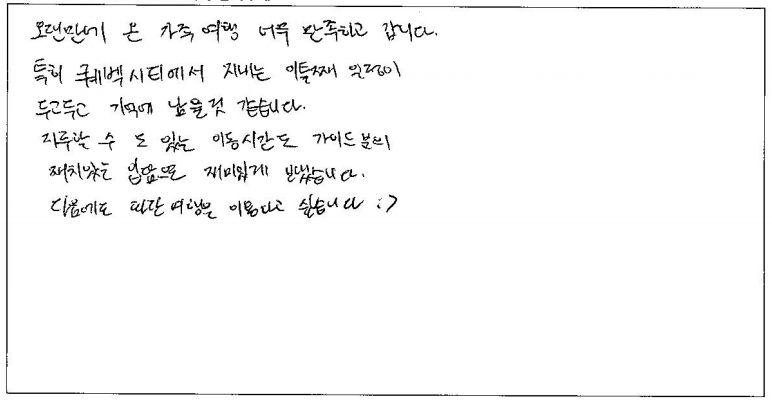 오랜만에 온 가족 여행 너무 만족하고 갑니다.
특히 퀘벡시티에서 지내는 이틀째 일정이
두고두고 기억에 남을것 같습니다.
지루할 수 도 있는 이동시간도 가이드분의
재치있는 입담으로 재미있게 보냈습니다.
다음에도 파란여행을 이용하고 싶습니다 :>